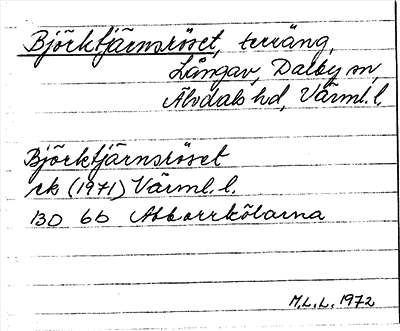 Björktjärnsröset, terräng,
Långav, Dalby sn,
Älvdals hd, Värml. l.
Björktjärnsröset
rk (1971) Värml. l.
13D 6b Abborrkölarna
M.L.L. 1972